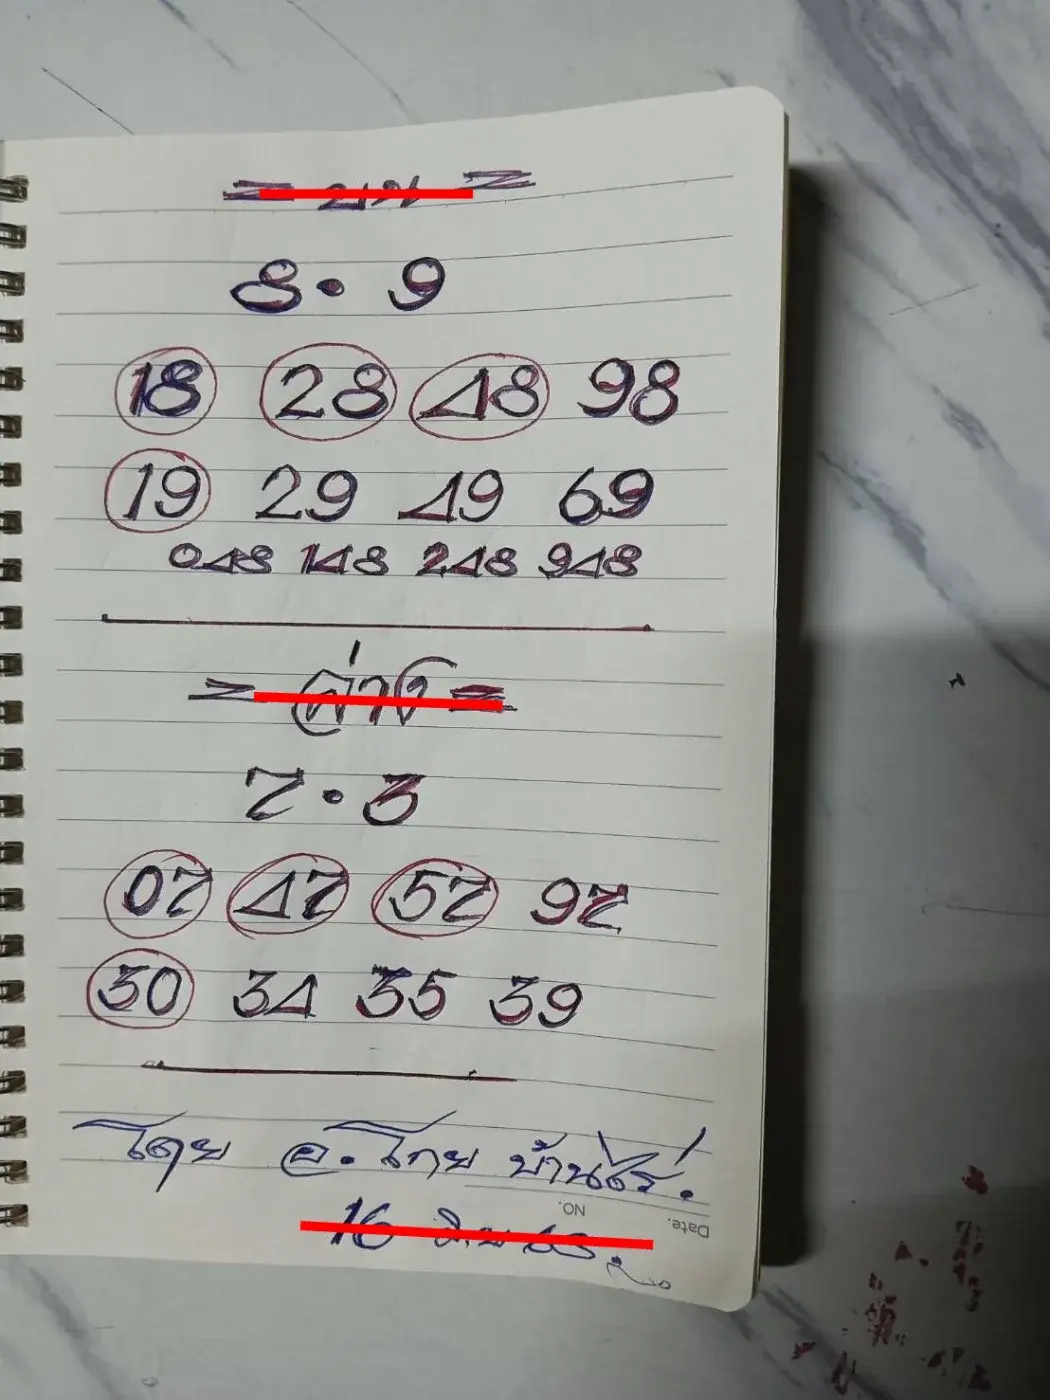 = บน =
8 . 9
18 28 48 98
19 29 49 69
048 148 248 948
= ล่าง =
7 . 3
07 47 57 97
30 34 35 39
โดย อ. ไทย บ้านไร่.
NO.
Date.
16